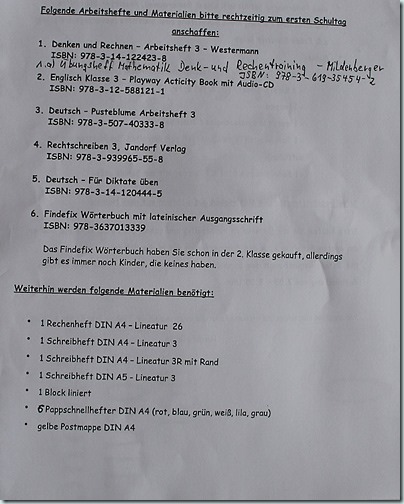 Folgende Arbeitshefte und Materialien bitte rechtzeitig zum ersten Schultag
anschaffen:
1. Denken und Rechnen - Arbeitsheft 3 - Westermann
ISBN: 978-3-14-122423-8
1.a) Übungsheft Mathematik Denk- und Rechentraining - Mildenberger
ISBN: 978-3-619-35454-2
2. Englisch Klasse 3 - Playway Acticity Book mit Audio-CD
ISBN: 978-3-12-588121-1
3. Deutsch - Pusteblume Arbeitsheft 3
ISBN: 978-3-507-40333-8
4. Rechtschreiben 3, Jandorf Verlag
ISBN: 978-3-939965-55-8
5. Deutsch - Für Diktate üben
ISBN: 978-3-14-120444-5
6. Findefix Wörterbuch mit lateinischer Ausgangsschrift
ISBN: 978-3637013339
Das Findefix Wörterbuch haben Sie schon in der 2. Klasse gekauft, allerdings
gibt es immer noch Kinder, die keines haben.
Weiterhin werden folgende Materialien benötigt:
• 1 Rechenheft DIN A4 - Lineatur 26
• 1 Schreibheft DIN A4 - Lineatur 3
• 1 Schreibheft DIN A4 - Lineatur 3R mit Rand
• 1 Schreibheft DIN A5 - Lineatur 3
• 1 Block liniert
• 6 Pappschnellhefter DIN A4 (rot, blau, grün, weiß, lila, grau)
• gelbe Postmappe DIN A4